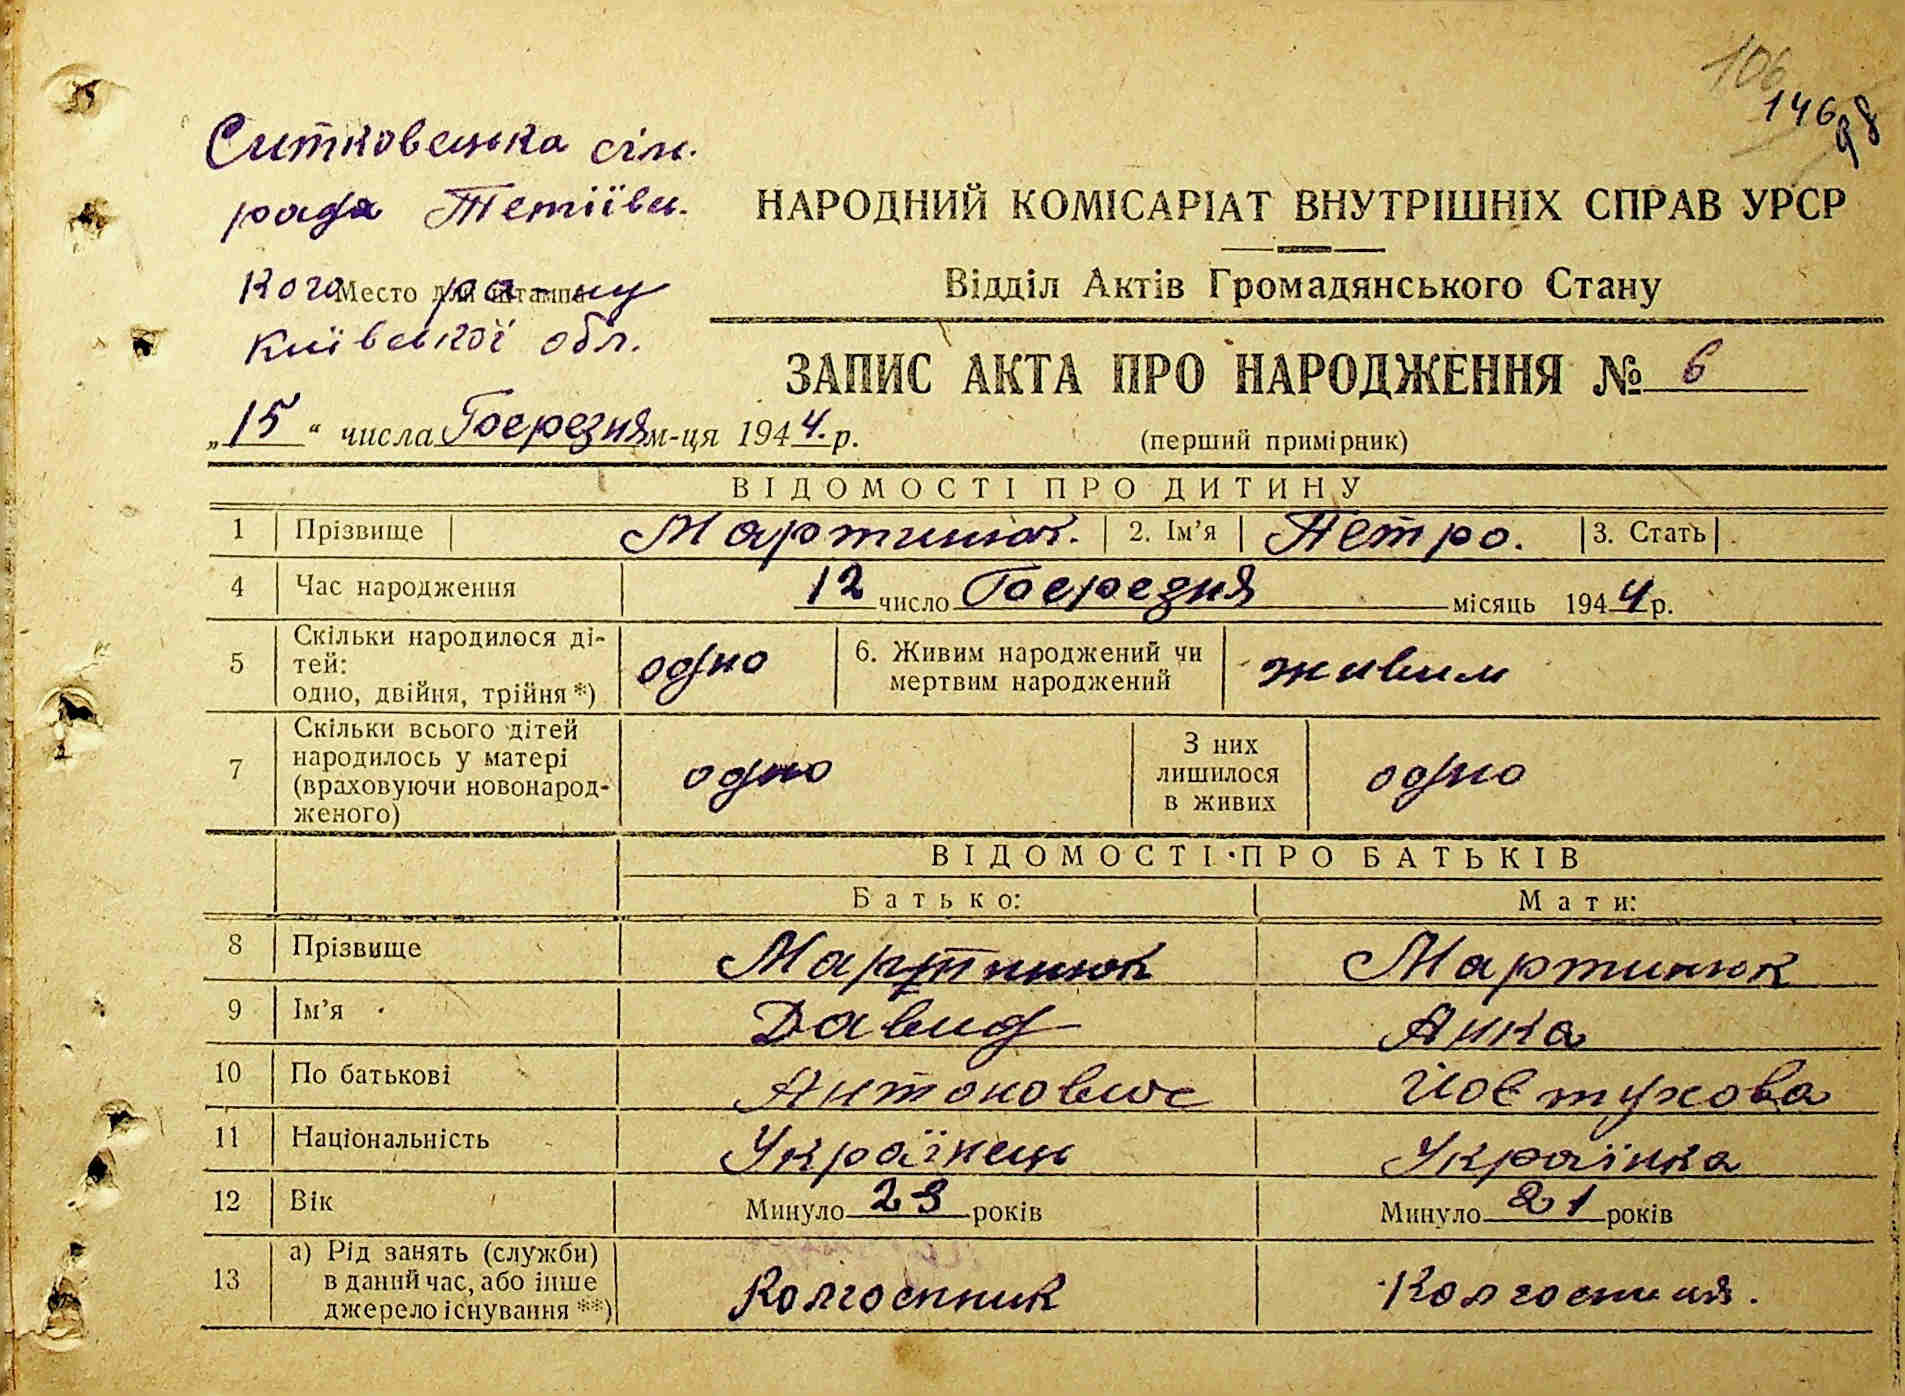 106
146
98
Ситковецька сіл.
рада Тетіївсь.
НАРОДНИЙ КОМІСАРІАТ ВНУТРІШНІХ СПРАВ УРСР
кого ра-ну
Место для штампа
Київської обл.
Відділ Актів Громадянського Стану
ЗАПИС АКТА ПРО НАРОДЖЕННЯ № 6
„15“ числа Березня м-ця 1944. р.
(перший примірник)
ВІДОМОСТІ ПРО ДИТИНУ
1 Прізвище Мартинюк. 2. Ім’я Петро. 3. Стать
4 Час народження 12 число Березня місяць 1944 р.
5 Скільки народилося ді-
тей:
одно, двійня, трійня *) одно 6. Живим народжений чи
мертвим народжений живим
7 Скільки всього дітей
народилось у матері
(враховуючи новонарод-
женого) одно З них
лишилося
в живих одно
ВІДОМОСТІ ПРО БАТЬКІВ
Батько: Мати:
8 Прізвище Мартинюк Мартинюк
9 Ім’я Давид Анна
10 По батькові Антонович Йовтухова
11 Національність Українець Українка
12 Вік Минуло 23 років Минуло 21 років
13 а) Рід занять (служби)
в даний час, або інше
джерело існування **) Колгоспник Колгоспниця.